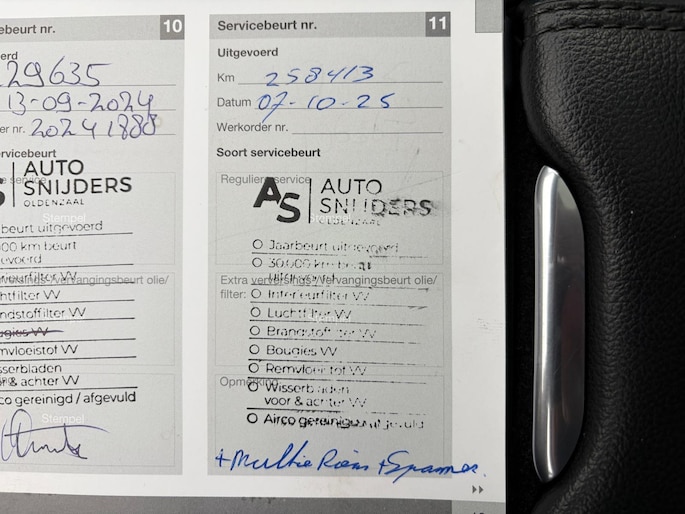 ebeurt nr. 10
erd
29635
13-09-2024
er nr. 20241888
ervicebeurt
e service
S AUTO
SNIJDERS
OLDENZAAL
Stempel
beurt uitgevoerd
000 km beurt
evoerd
rieurfilter VV
vervangingsbeurt olie/
htfilter VV
ndstoffilter VV
ugies VV
mvloeistof VV
sserbladen
r & achter VV
co gereinigd / afgevuld
Stempel
Servicebeurt nr. 11
Uitgevoerd
Km 258413
Datum 07-10-25
Werkorder nr.
Soort servicebeurt
Reguliere service
AS AUTO
SNIJDERS
OLDENZAAL
O Jaarbeurt uitgevoerd
O 30.000 km beurt
uitgevoerd
Extra verversings-/vervangingsbeurt olie/
filter: O Interieurfilter VV
O Luchtfilter VV
O Brandstoffilter VV
O Bougies VV
O Remvloeistof VV
Opmerking
O Wisserbladen
voor & achter VV
O Airco gereinigd / afgevuld
+ Multie Riem + Spanner.